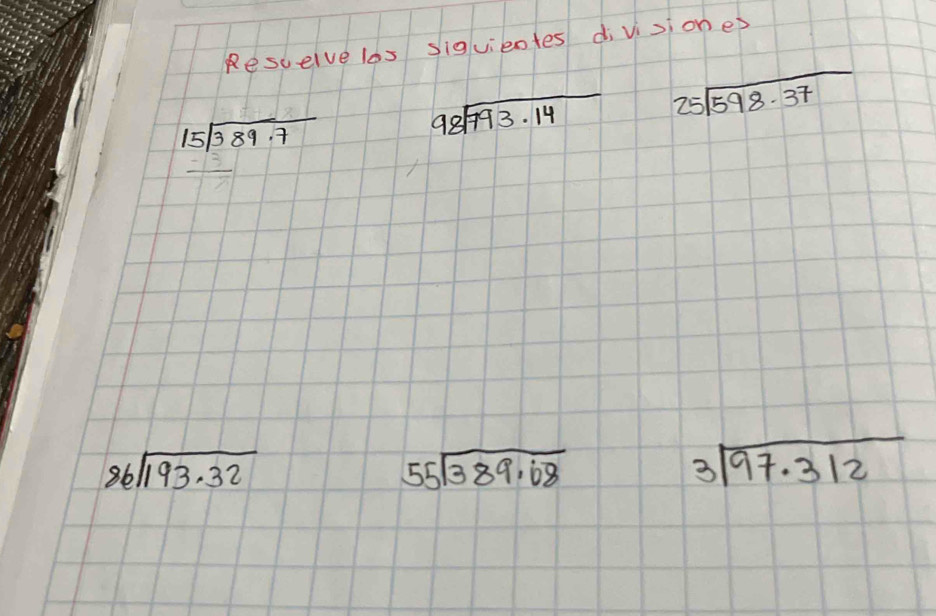 Resuelve las siguientes divisiones
15 389.7
98 793.14
25 598.37
- 3
86 193.32
55 389.68
3 97.312